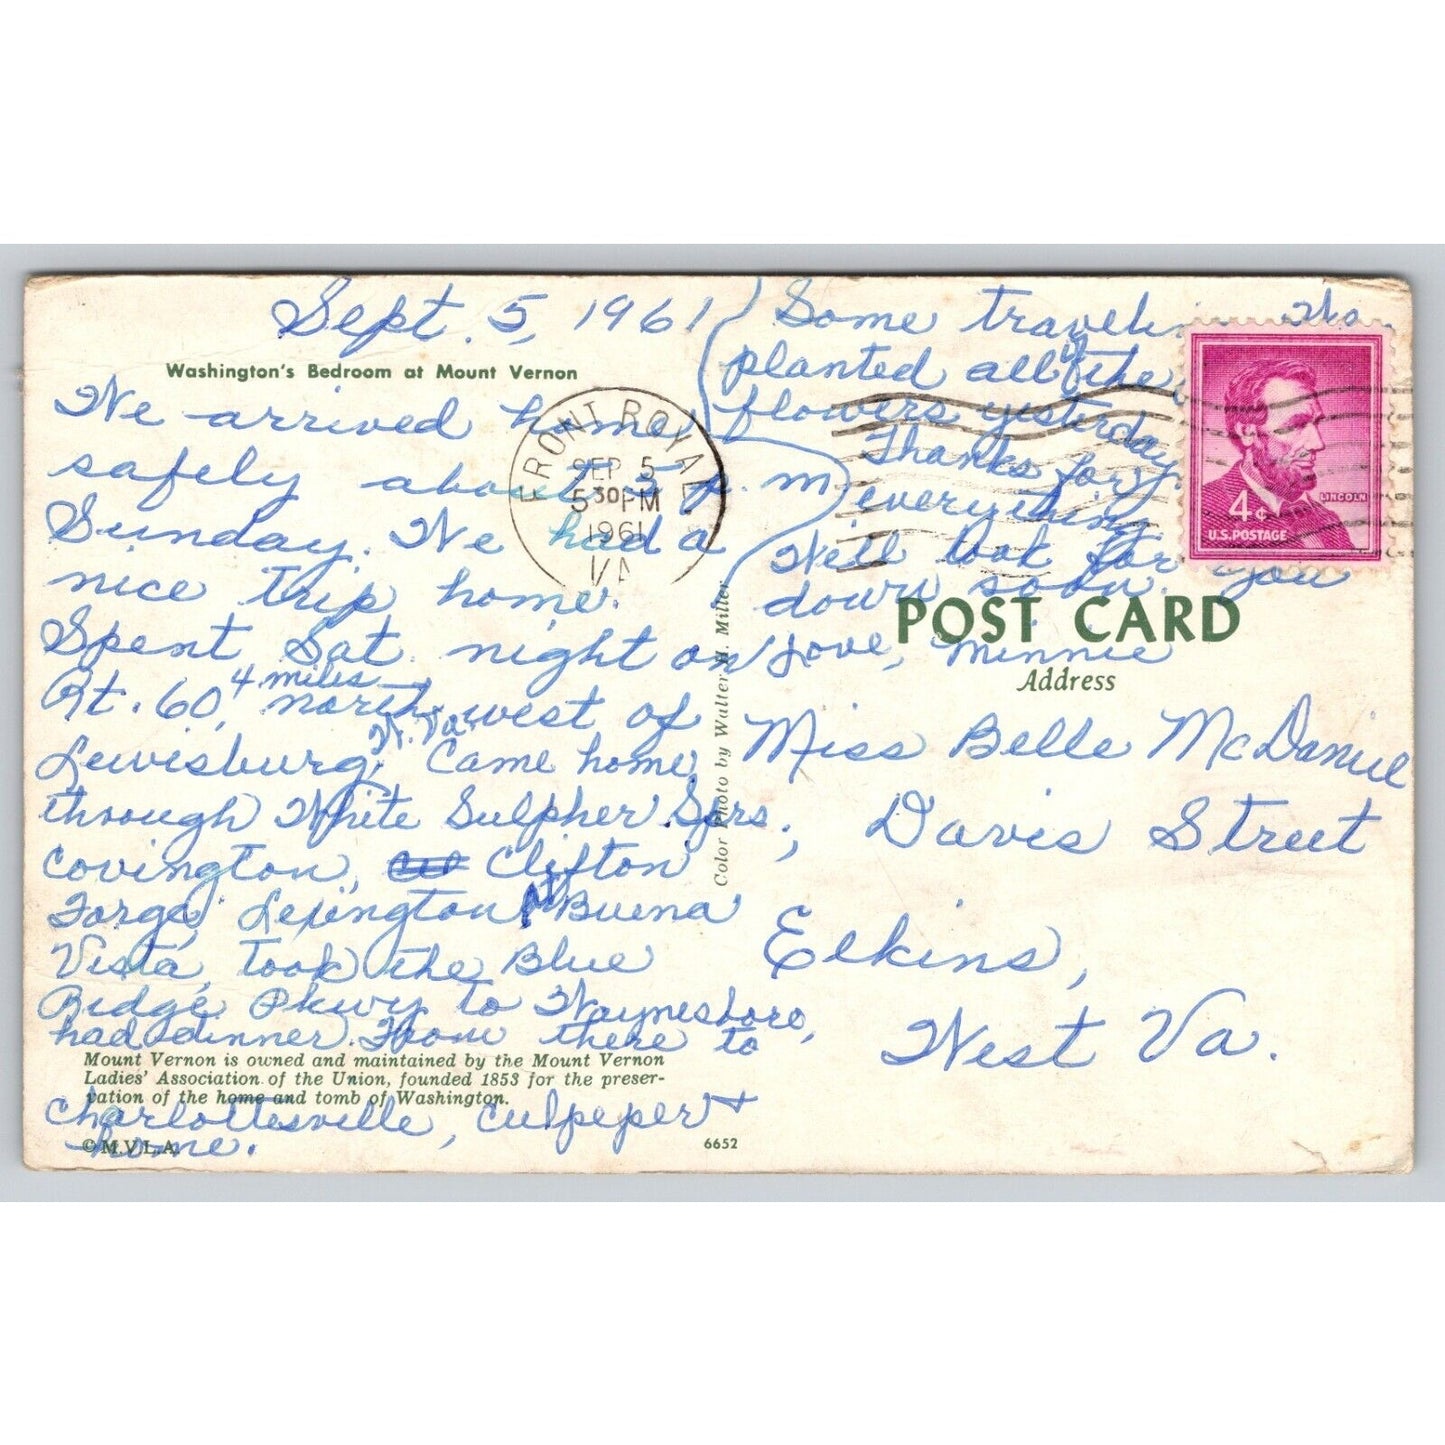 Sept. 5, 1961
Washington's Bedroom at Mount Vernon
We arrived home
safely about 5 p.m
Sunday. We had a
nice trip home.
Spent Sat. night on
Rt. 60, 4 miles north west of
Lewisburg, W. Va. Came home
through White Sulpher Sprs.,
Covington, Clifton
Forge, Lexington, Buena
Vista, took the Blue
Ridge Pkwy to Waynesboro,
had dinner. From there to
Mount Vernon is owned and maintained by the Mount Vernon
Ladies' Association of the Union, founded 1853 for the preser-
vation of the home and tomb of Washington.
Charlottesville, Culpeper +
home.
© M.V.L.A.
6652
Color Photo by Walter H. Miller
FRONT ROYAL
SEP 5
5 30 PM
1961
VA
Some
planted all of the
flowers yesterday
Thanks for
everything
We'll look for you
down soon.
Love, Minnie
4¢
LINCOLN
U.S. POSTAGE
POST CARD
Address
Miss Belle McDaniel
Davis Street
Elkins,
West Va.